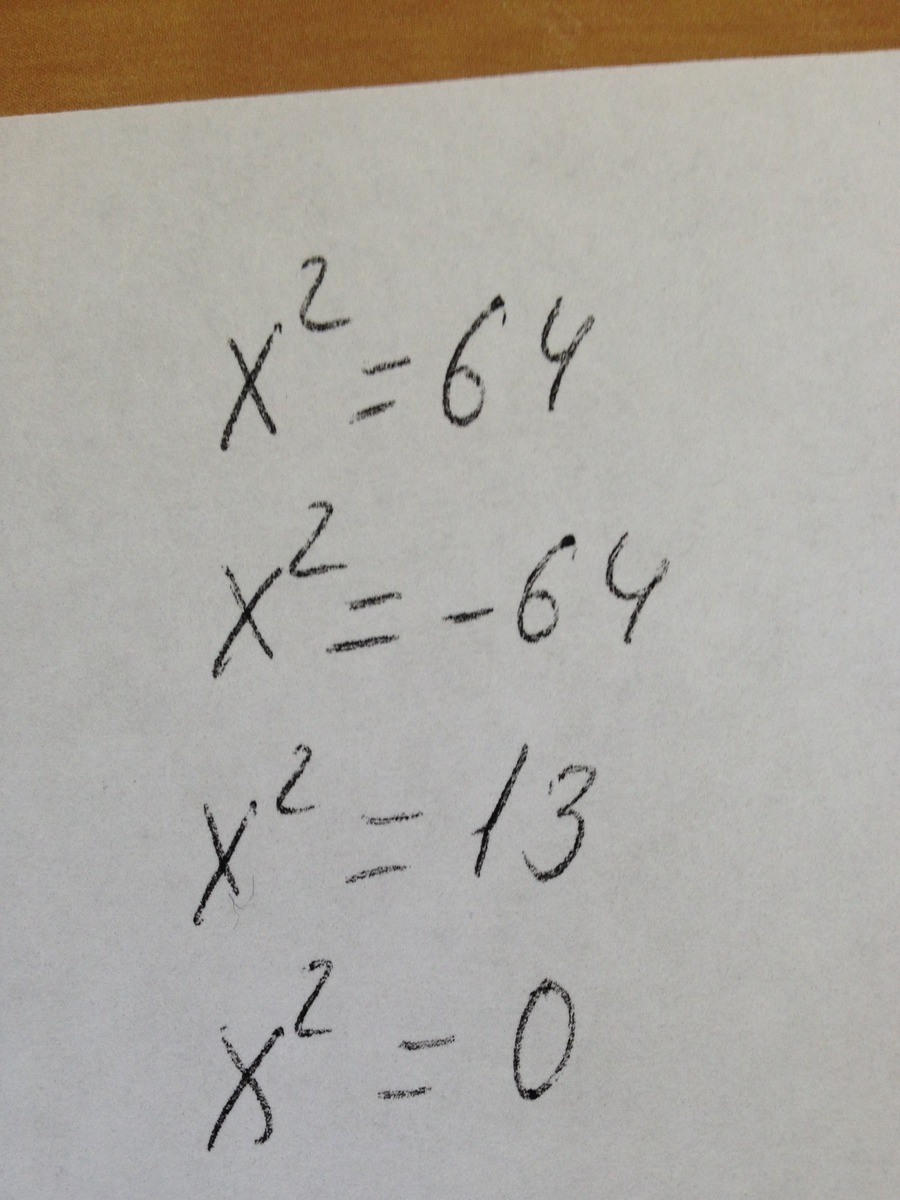 x² = 64
x² = -64
x² = 13
x² = 0